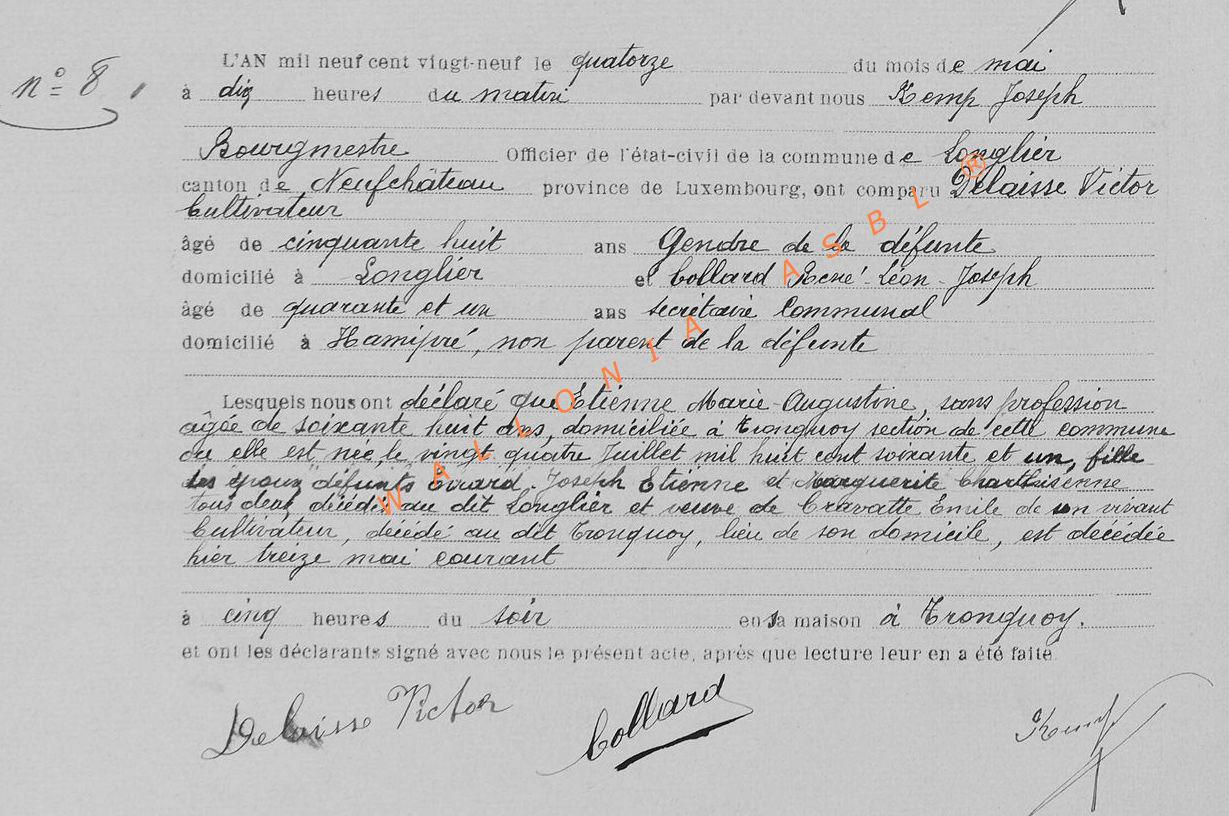 L'AN mil neuf cent vingt-neuf le quatorze du mois de mai
n° 8
à dix heures du matin par devant nous Kemp Joseph
Bourgmestre Officier de l'état-civil de la commune de Longlier
canton de Neufchâteau province de Luxembourg, ont comparu Delaisse Victor
Cultivateur
âgé de cinquante huit ans Gendre de la défunte
domicilié à Longlier et Collard René-Léon-Joseph
âgé de quarante et un ans secrétaire Communal
domicilié à Hamipré, non parent de la défunte
Lesquels nous ont déclaré que Etienne Marie-Augustine, sans profession
âgée de soixante huit ans, domiciliée à Tronquoy section de cette commune
ou elle est née, le vingt quatre Juillet mil huit cent soixante et un, fille
des époux défunts Evrard-Joseph Etienne et Marguerite
tous deux décédés au dit Longlier et veuve de Cravatte Emile de son vivant
Cultivateur, décédé au dit Tronquoy, lieu de son domicile, est décédée
hier treize mai courant
à cinq heures du soir en sa maison à Tronquoy.
et ont les déclarants signé avec nous le présent acte, après que lecture leur en a été faite
Delaisse Victor Collard Kemp
WALLONIA ASBL ®